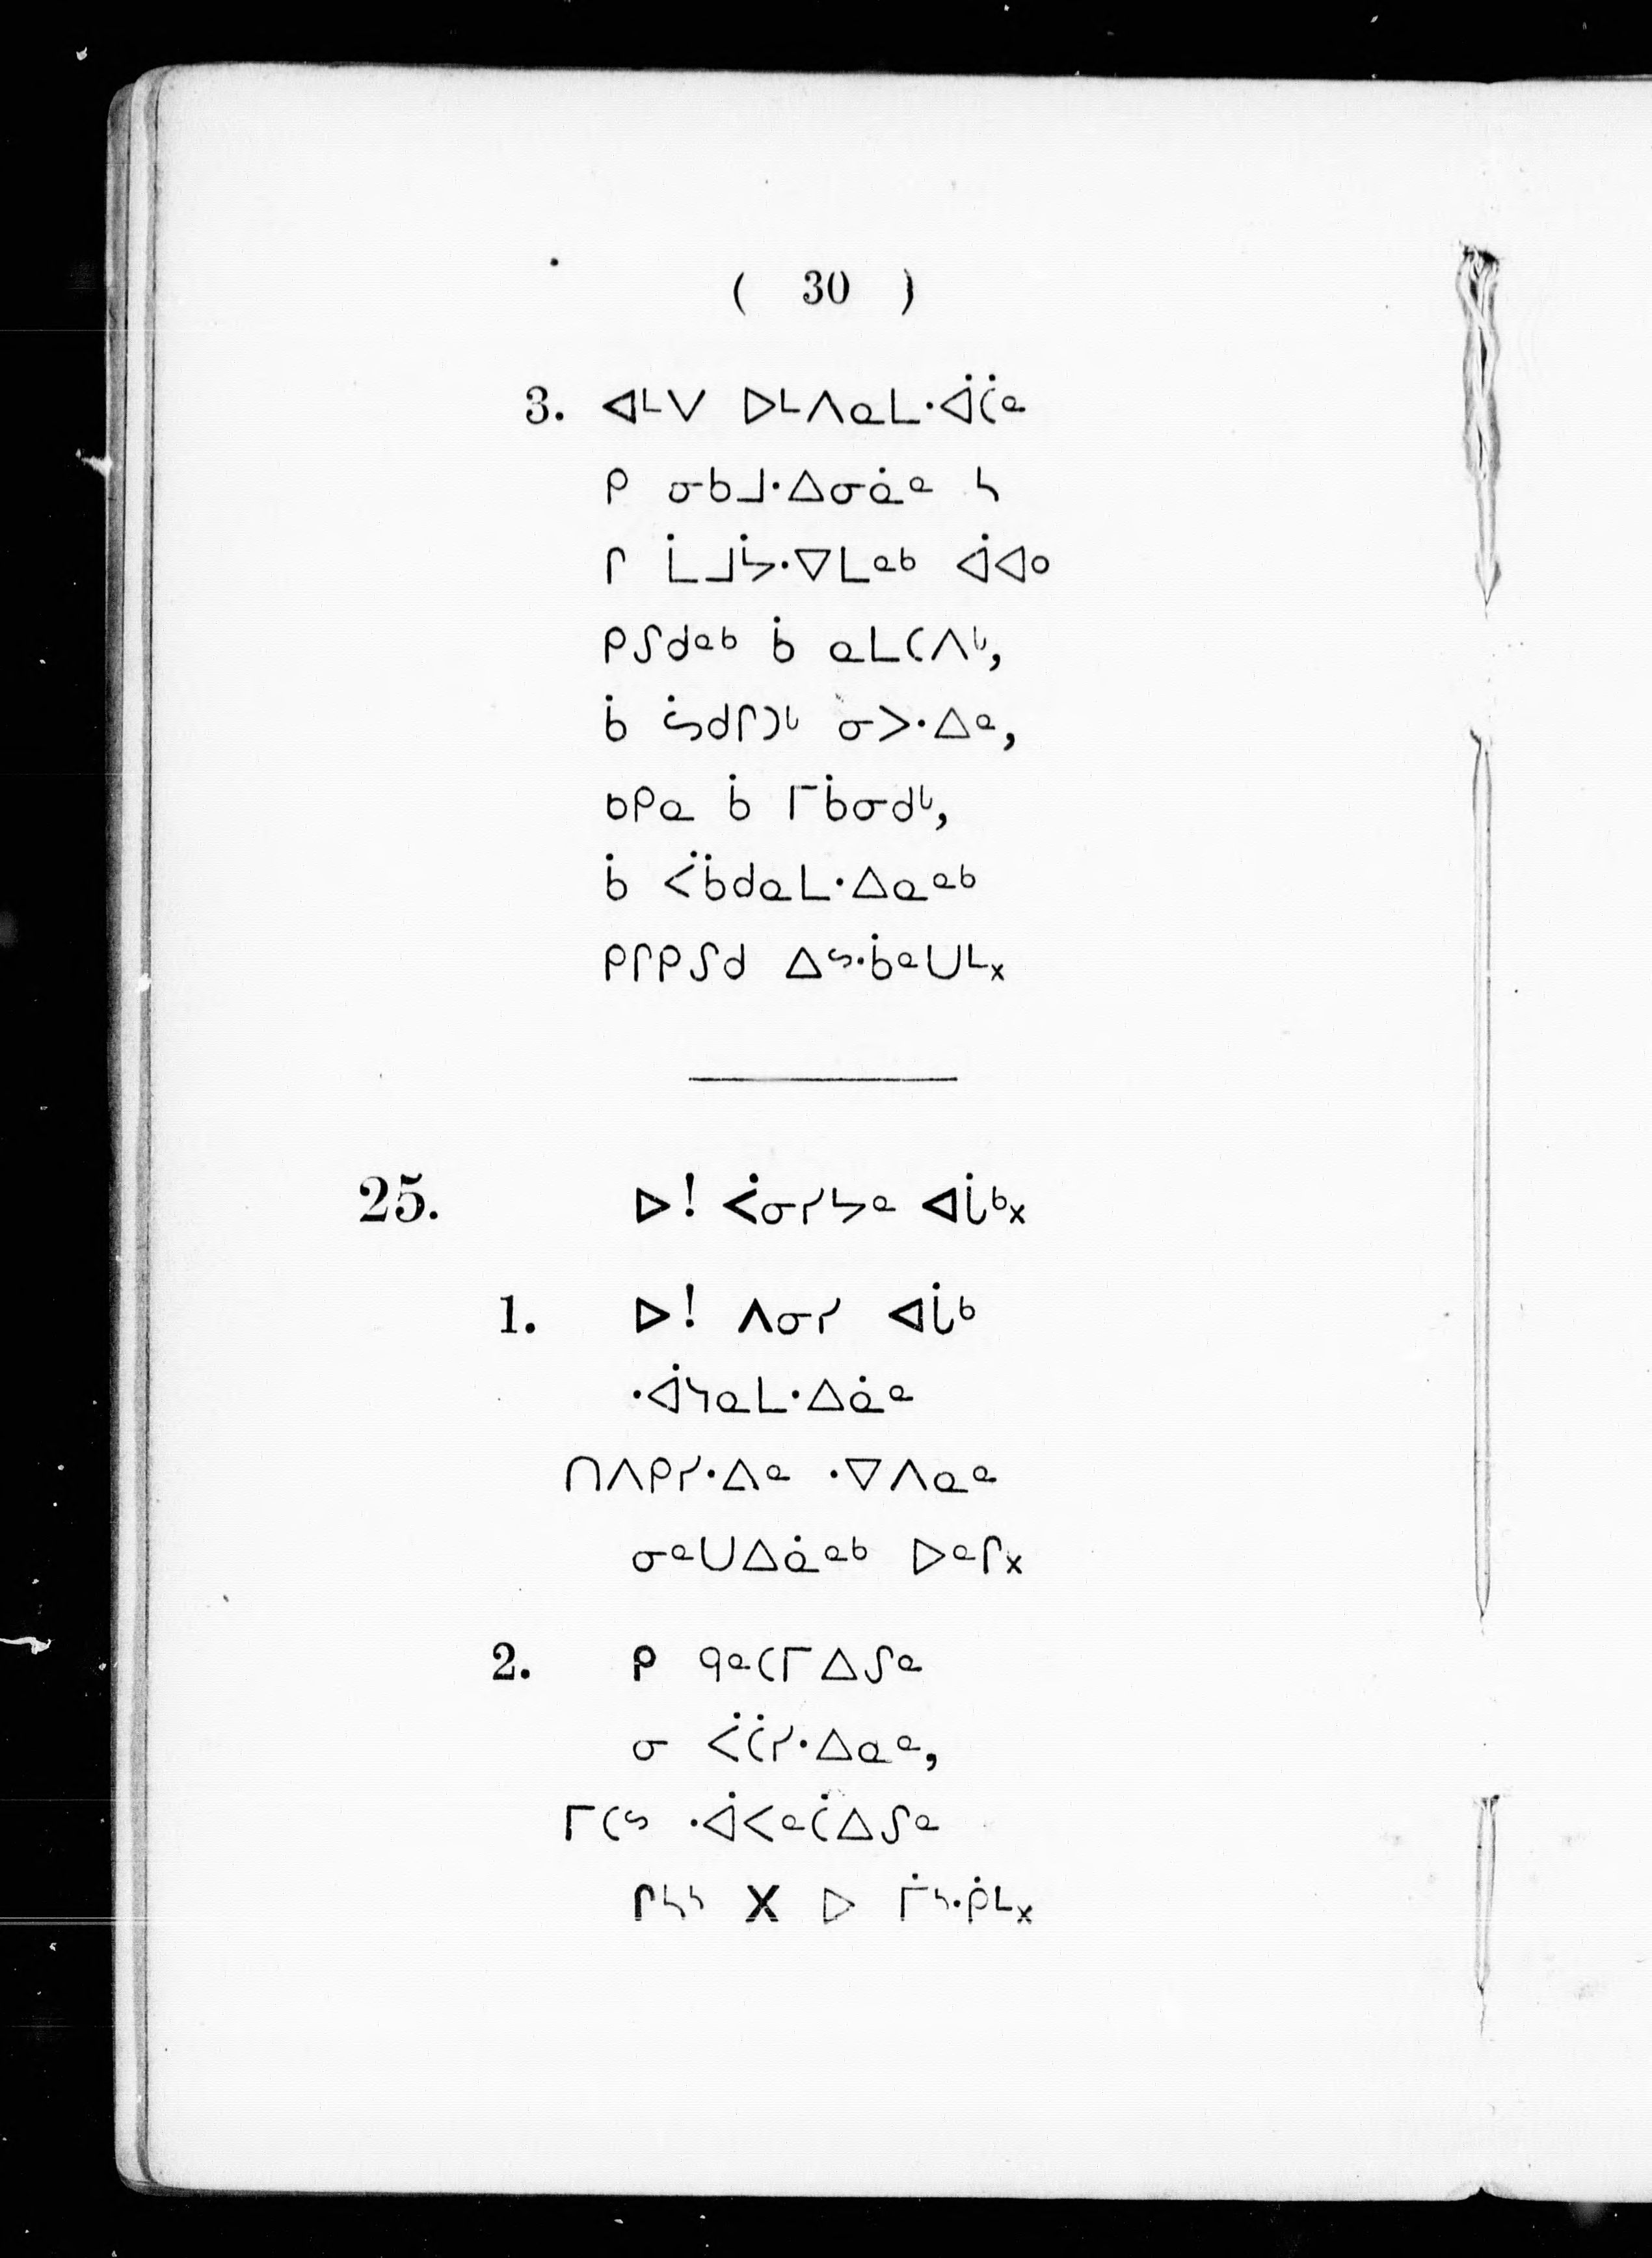 ( 30 )
3. ᐊᒻᐯ ᐅᒻᐱᓇᒪᐧᐋᑖᓐ
ᑭ ᓂᑲᒧᐧᐃᓂᓈᓐ ᓴ
ᒋ ᒫᒧᔮᐧᐁᒪᓐᒃ ᐋᐊᐤ
ᑭᔑᑯᓐᒃ ᑳ ᓇᒪᑕᐱᒡ,
ᑳ ᓵᑯᒋᑐᒡ ᓂᐳᐧᐃᓐ,
ᑲᑭᓇ ᑳ ᒥᑳᓂᑯᒡ,
ᑳ ᐹᑳᑯᓇᒪᐧᐃᓇᓐᒃ
ᑭᒋᑭᔑᑯ ᐃᔥᐧᑳᓐᑌᒻ᙮
25. ᐅ! ᐹᓂᓯᔭᓐ ᐊᒑᒃ᙮
1. ᐅ! ᐱᓂᓯ ᐊᒑᒃ
ᐧᐋᓭᓇᒪᐧᐃᓈᓐ
ᑎᐱᑭᓯᐧᐃᓐ ᐧᐁᐱᓇᓐ
ᓂᓐᑌᐃᓈᓐᒃ ᐅᓐᒋ᙮
2. ᑭ ᑫᓐᑕᒥᐃᔑᓐ
ᓂ ᐹᑖᓯᐧᐃᓇᓐ,
ᒥᑕᔥ ᐧᐋᐸᓐᑖᐃᔑᓐ
ᒋᓴᔅ ᕽ ᐅ ᒦᔅᐧᑮᒻ᙮